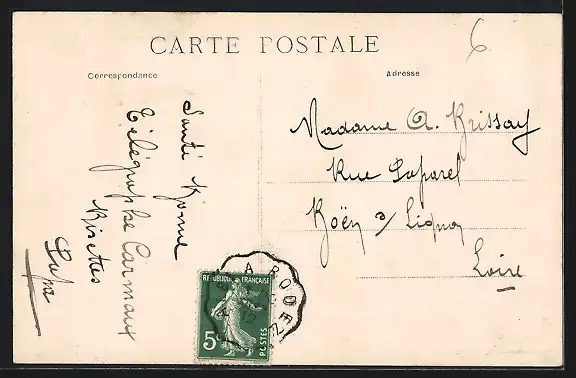 CARTE POSTALE
Correspondance
Adresse
6
Santé bonne
Télégraphe Carmaux
Bisettes
Papa
Madame A. Brissay
Rue
Boën s/ Lignon
Loire
REPUBLIQUE FRANÇAISE
5c
POSTES